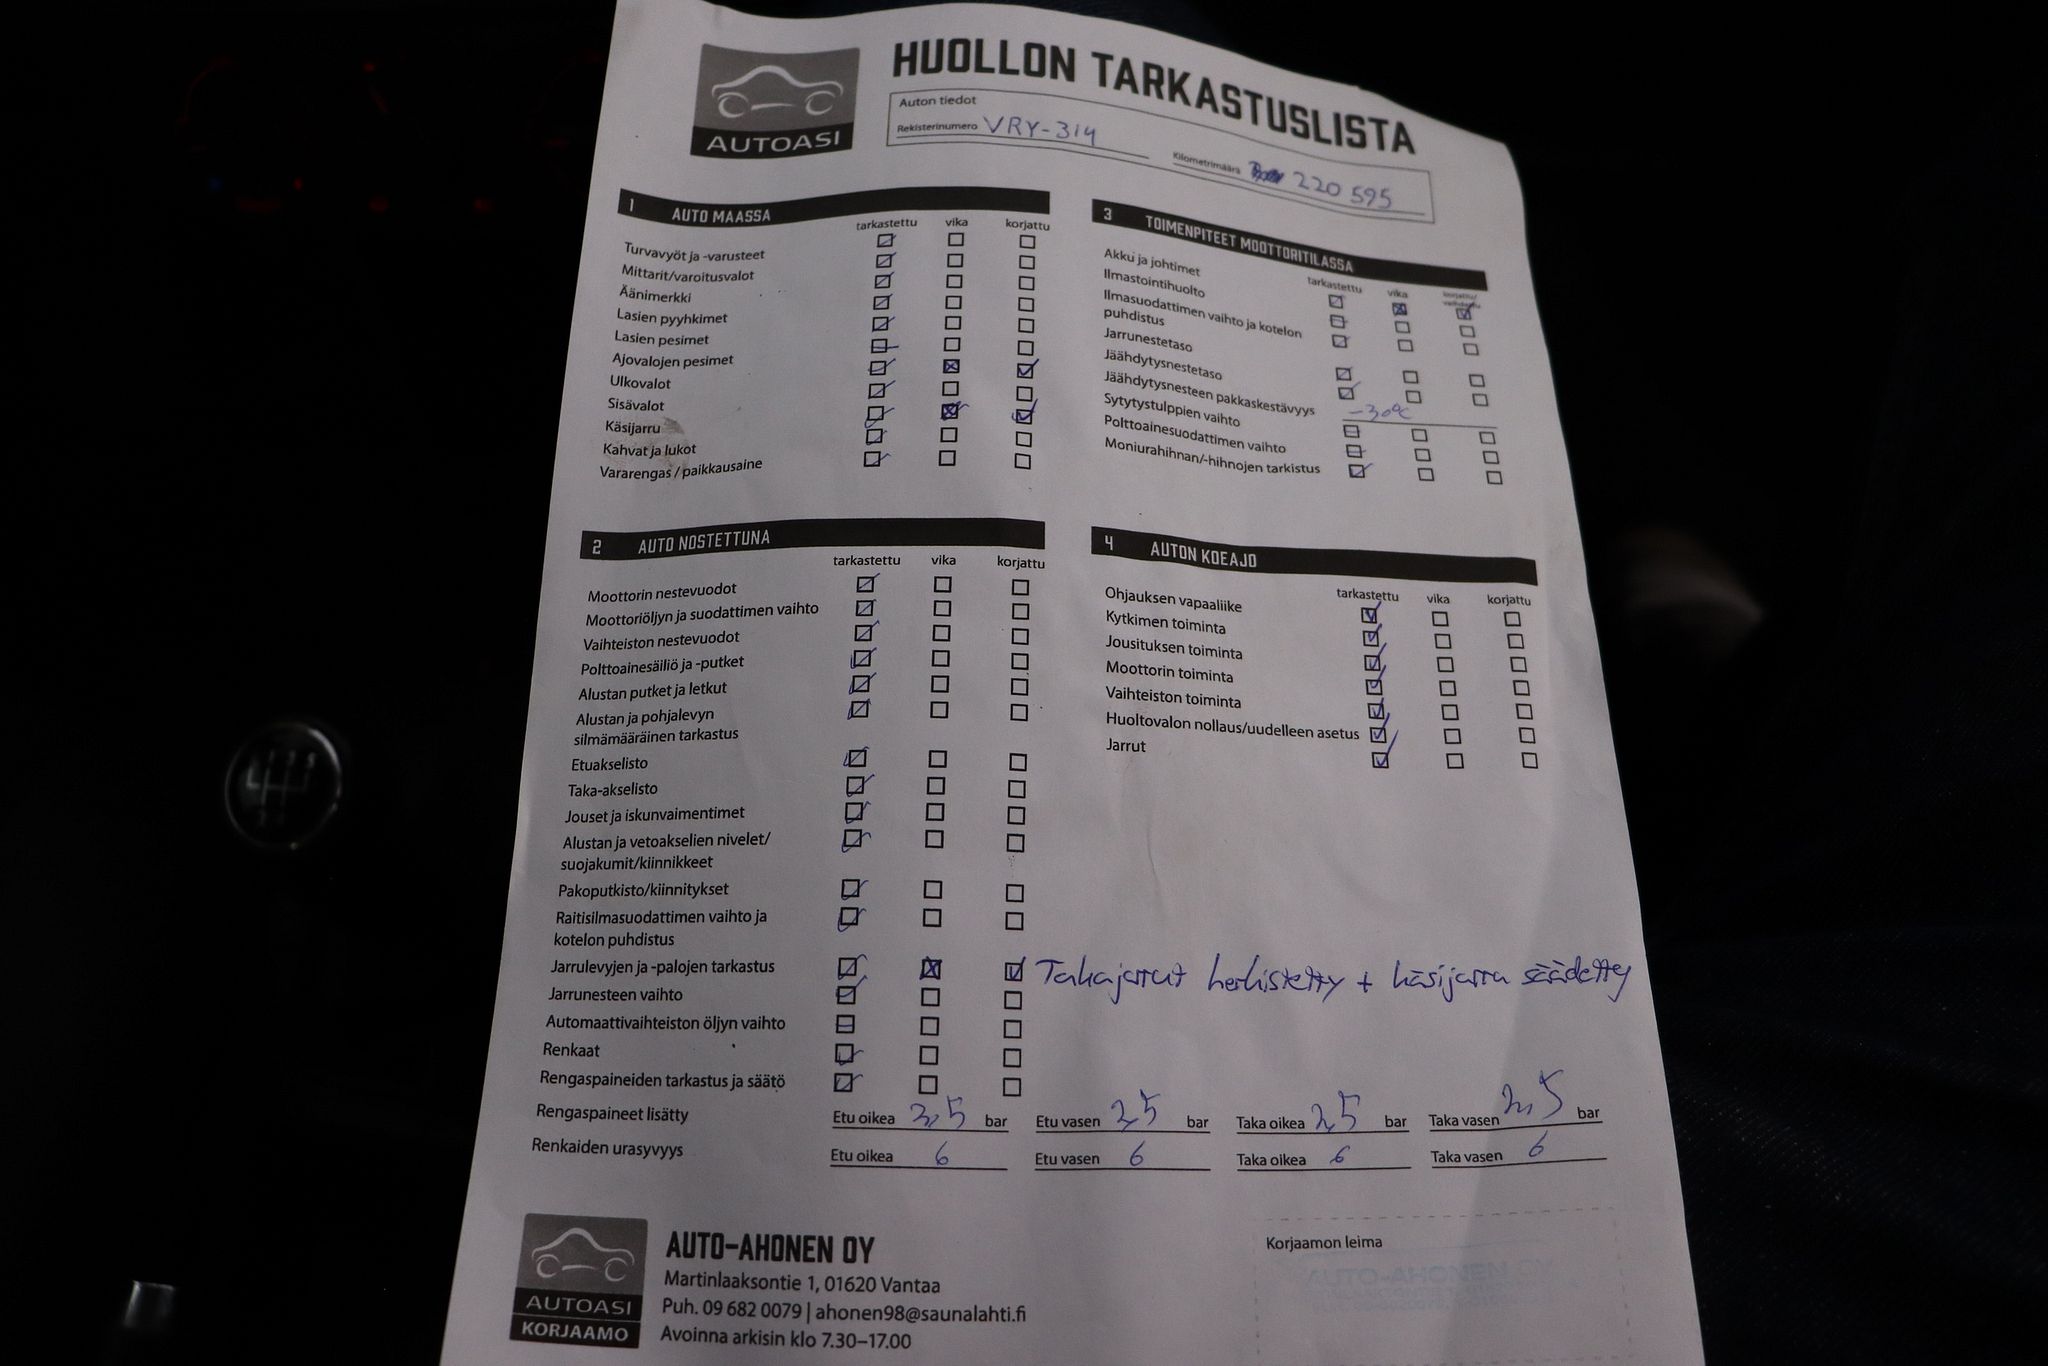 HUOLLON TARKASTUSLISTA
AUTOASI
Auton tiedot
Rekisterinumero VRY-314
Kilometrimäärä 220 595
1 AUTO MAASSA
tarkastettu vika korjattu
Turvavyöt ja -varusteet
Mittarit/varoitusvalot
Äänimerkki
Lasien pyyhkimet
Lasien pesimet
Ajovalojen pesimet
Ulkovalot
Sisävalot
Käsijarru
Kahvat ja lukot
Vararengas / paikkausaine
2 AUTO NOSTETTUNA
tarkastettu vika korjattu
Moottorin nestevuodot
Moottoriöljyn ja suodattimen vaihto
Vaihteiston nestevuodot
Polttoainesäiliö ja -putket
Alustan putket ja letkut
Alustan ja pohjalevyn
silmämääräinen tarkastus
Etuakselisto
Taka-akselisto
Jouset ja iskunvaimentimet
Alustan ja vetoakselien nivelet/
suojakumit/kiinnikkeet
Pakoputkisto/kiinnitykset
Raitisilmasuodattimen vaihto ja
kotelon puhdistus
Jarrulevyjen ja -palojen tarkastus Takajarrut herkistetty + käsijarru säädetty
Jarrunesteen vaihto
Automaattivaihteiston öljyn vaihto
Renkaat
Rengaspaineiden tarkastus ja säätö
Rengaspaineet lisätty Etu oikea 2,5 bar Etu vasen 2,5 bar Taka oikea 2,5 bar Taka vasen 2,5 bar
Renkaiden urasyvyys Etu oikea 6 Etu vasen 6 Taka oikea 6 Taka vasen 6
3 TOIMENPITEET MOOTTORITILASSA
tarkastettu vika korjattu/
vaihdettu
Akku ja johtimet
Ilmastointihuolto
Ilmasuodattimen vaihto ja kotelon
puhdistus
Jarrunestetaso
Jäähdytysnestetaso
Jäähdytysnesteen pakkaskestävyys -30°C
Sytytystulppien vaihto
Polttoainesuodattimen vaihto
Moniurahihnan/-hihnojen tarkistus
4 AUTON KOEAJO
tarkastettu vika korjattu
Ohjauksen vapaaliike
Kytkimen toiminta
Jousituksen toiminta
Moottorin toiminta
Vaihteiston toiminta
Huoltovalon nollaus/uudelleen asetus
Jarrut
AUTOASI
KORJAAMO
AUTO-AHONEN OY
Martinlaaksontie 1, 01620 Vantaa
Puh. 09 682 0079 | ahonen98@saunalahti.fi
Avoinna arkisin klo 7.30–17.00
Korjaamon leima
AUTO-AHONEN OY